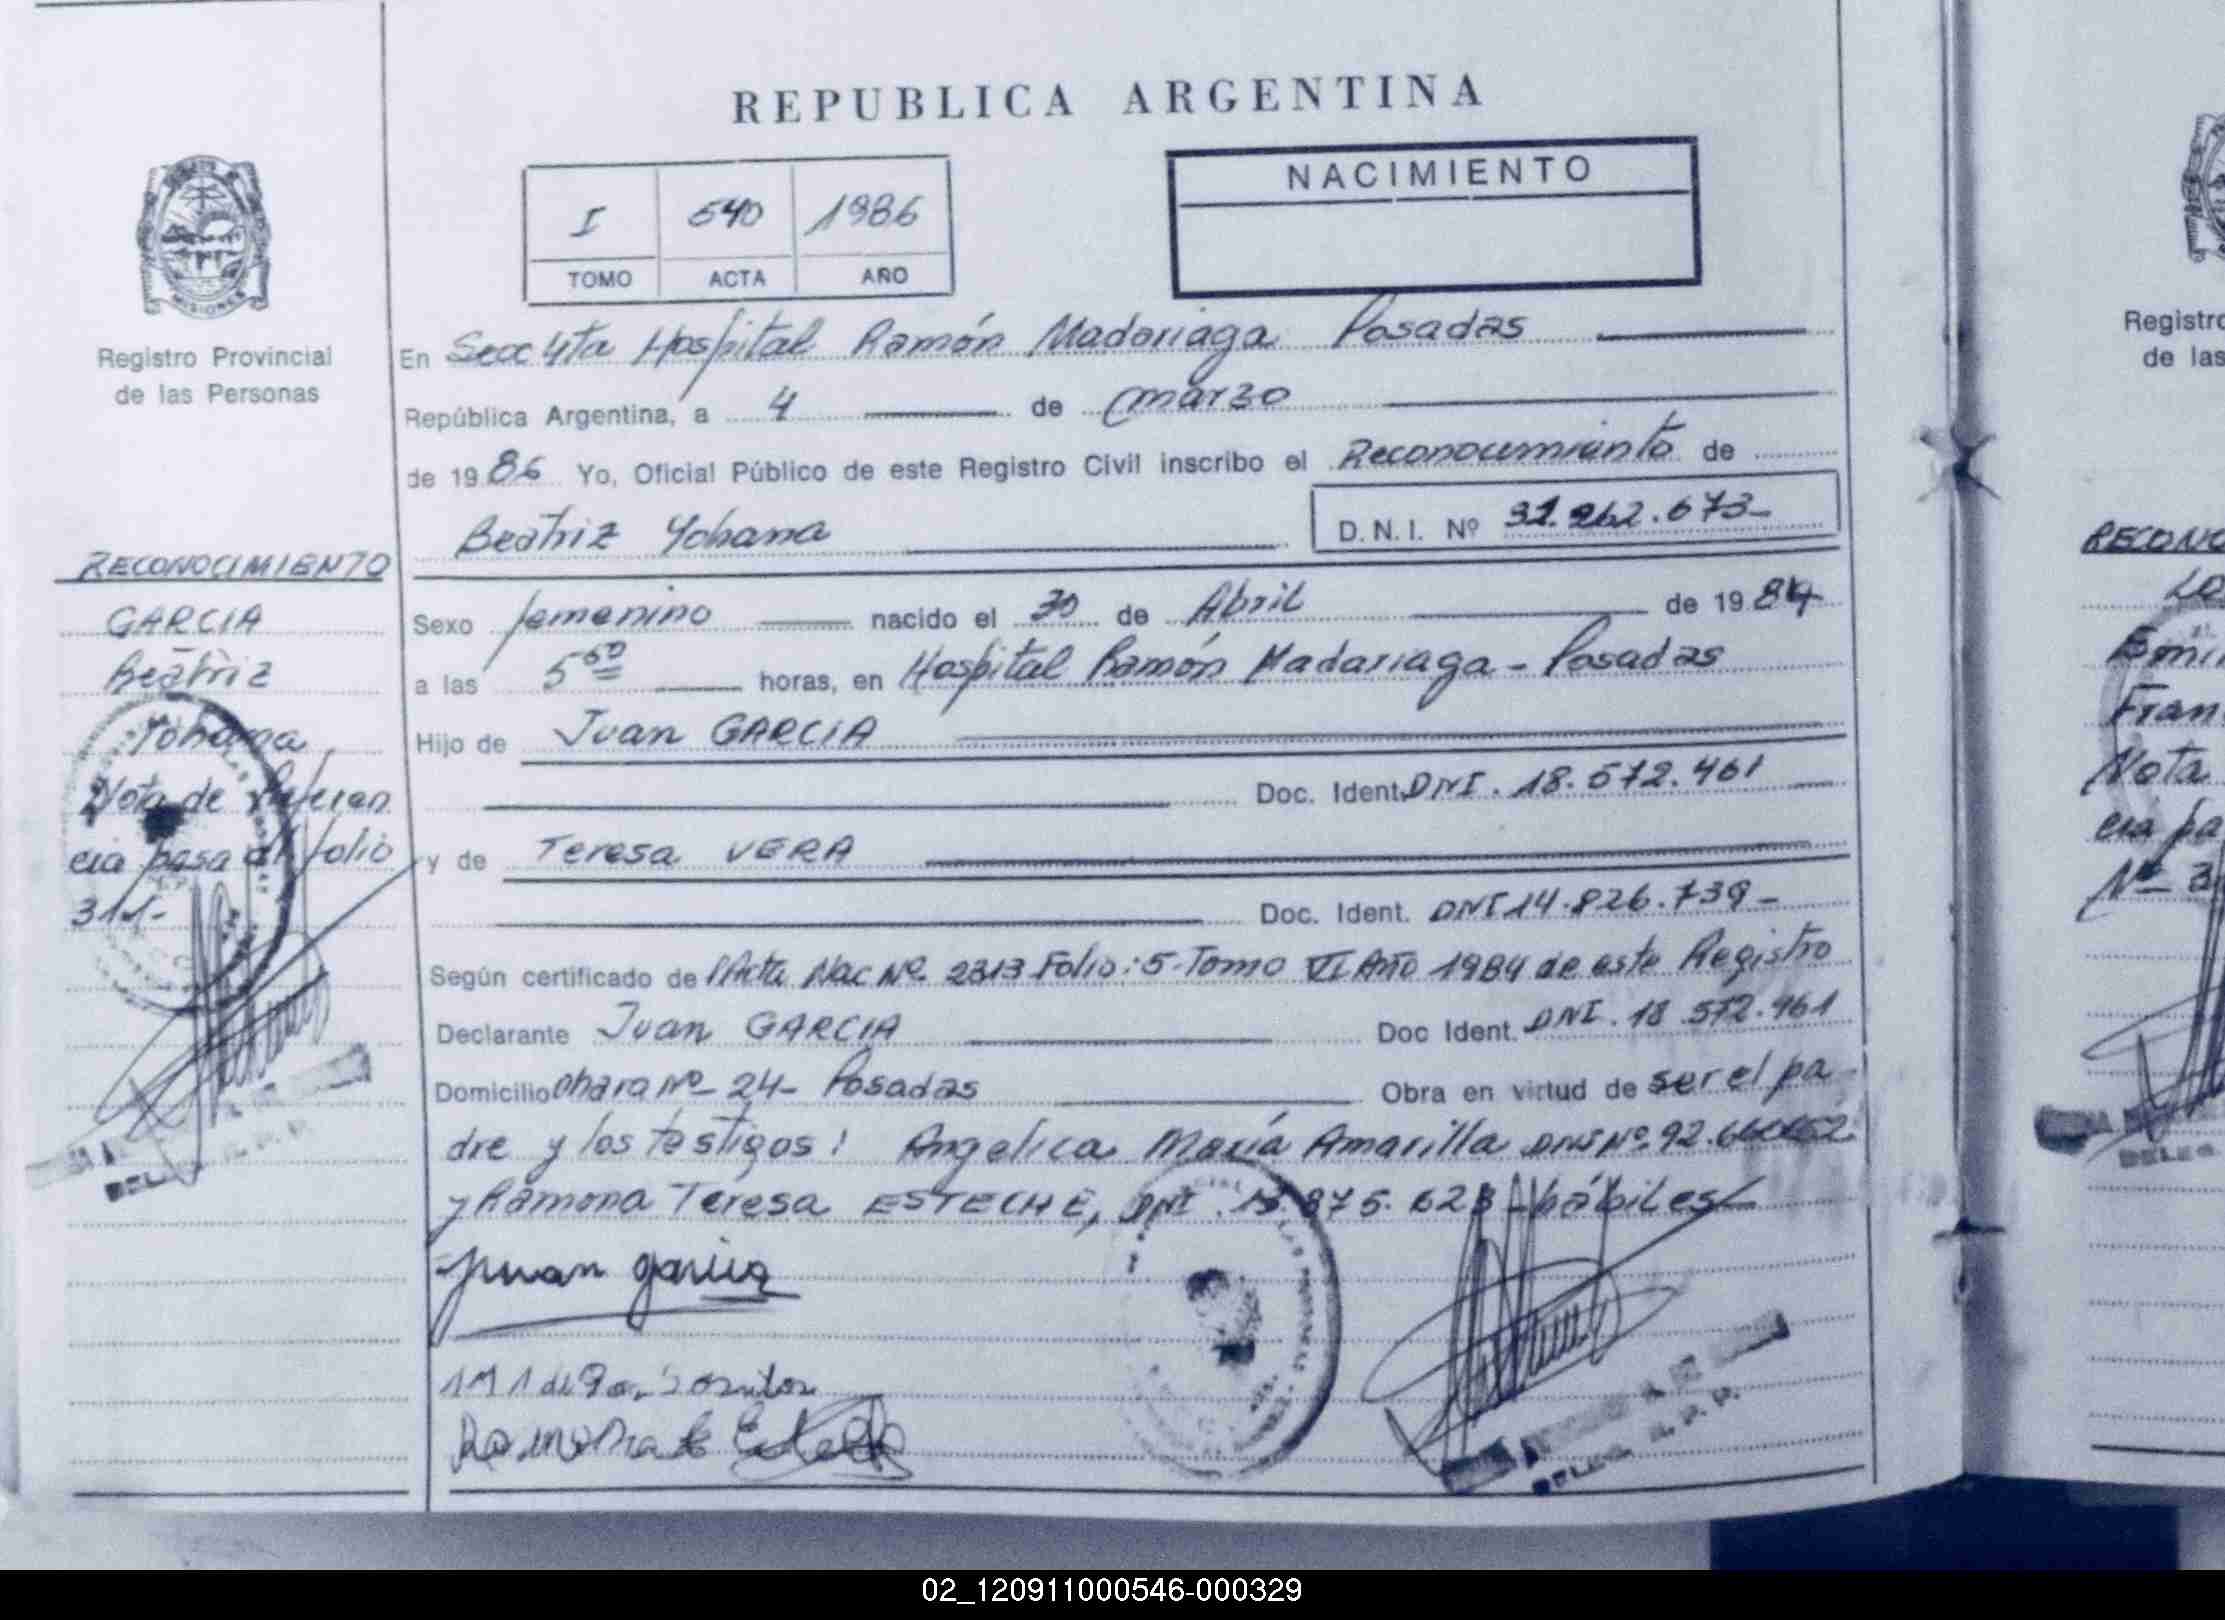 REPUBLICA ARGENTINA
I 540 1986
TOMO ACTA AÑO
NACIMIENTO
MISIONES
Registro Provincial
de las Personas
RECONOCIMIENTO
GARCIA
Beatriz
Yohana
Nota de Referen
cia pasa al folio
311-
En Secc 4ta Hospital Ramón Madariaga Posadas
República Argentina, a 4 de marzo
de 1986 Yo, Oficial Público de este Registro Civil inscribo el Reconocimiento de
Beatriz Yohana D.N.I. Nº 31.262.673-
Sexo femenino nacido el 30 de Abril de 1984
a las 5 50 horas, en Hospital Ramón Madariaga - Posadas
Hijo de Juan GARCIA
Doc. Ident. DNI. 18.572.461
y de Teresa VERA
Doc. Ident. DNI 14.826.739-
Según certificado de Acta Nac Nº 2313 Folio: 5 Tomo VI Año 1984 de este Registro
Declarante Juan GARCIA Doc Ident. DNI. 18 572.461
Domicilio Ohara Nº 24- Posadas Obra en virtud de ser el pa
dre y los testigos: Angelica María Amarilla DNI Nº 92.
y Ramona Teresa ESTECHE, DNI 875.623 hábiles
juan garcia
Registro
de las
RECONO
Emi
Fran
Nota
cia pa
Nº 3
02_120911000546-000329